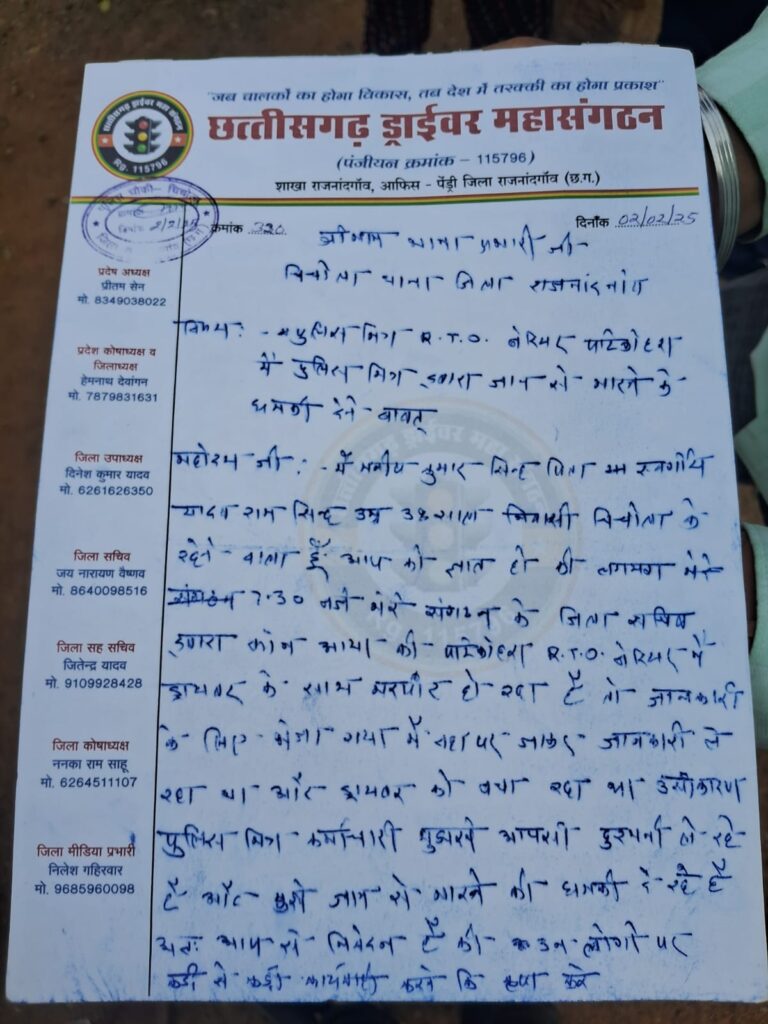 "जब चालकों का होगा विकास, तब देश में तरक्की का होगा प्रकाश"
छत्तीसगढ़ ड्राईवर महासंगठन
(पंजीयन क्रमांक – 115796)
शाखा राजनांदगाँव, आफिस - पेंड्री जिला राजनांदगाँव (छ.ग.)
छत्तीसगढ़ ड्राईवर महासंगठन
RG. 115796
पुलिस चौकी- चिचोला
क्रमांक 320
दिनाँक 02/02/25
प्रदेष अध्यक्ष
प्रीतम सेन
मो. 8349038022
प्रदेश कोषाध्यक्ष व
जिलाध्यक्ष
हेमनाथ देवांगन
मो. 7879831631
जिला उपाध्यक्ष
दिनेश कुमार यादव
मो. 6261626350
जिला सचिव
जय नारायण वैष्णव
मो. 8640098516
जिला सह सचिव
जितेन्द्र यादव
मो. 9109928428
जिला कोषाध्यक्ष
ननका राम साहू
मो. 6264511107
जिला मीडिया प्रभारी
निलेश गहिरवार
मो. 9685960098
श्रीमान थाना प्रभारी जी
चिचोला थाना जिला राजनांदगांव
विषय: - पुलिस मित्र R.T.O. बेरियर पाटेकोहरा
में पुलिस मित्र द्वारा जान से मारने के
धमकी देने बाबत्
महोदय जी: - मैं मनीष कुमार सिन्हा पिता स्वर्गीय
यादव राम सिन्हा उम्र 38 साल निवासी चिचोला के
रहने वाला हूँ आप को ज्ञात हो की लगभग मेरे
7:30 बजे मेरे संगठन के जिला सचिव
द्वारा फोन आया की पाटेकोहरा R.T.O. बेरियर में
ड्रायवर के साथ मारपीट हो रहा है तो जानकारी
के लिए भेजा गया मैं वहा पर जाकर जानकारी ले
रहा था और ड्रायवर को बचा रहा था उसीकारण
पुलिस मित्र कर्मचारी मुझसे आपसी दुश्मनी ले रहे
है और मुझे जान से मारने की धमकी दे रहे है
अतः आप से निवेदन है की उन लोगो पर
कडी से कडी कार्यवाही करने कि कृपा करे